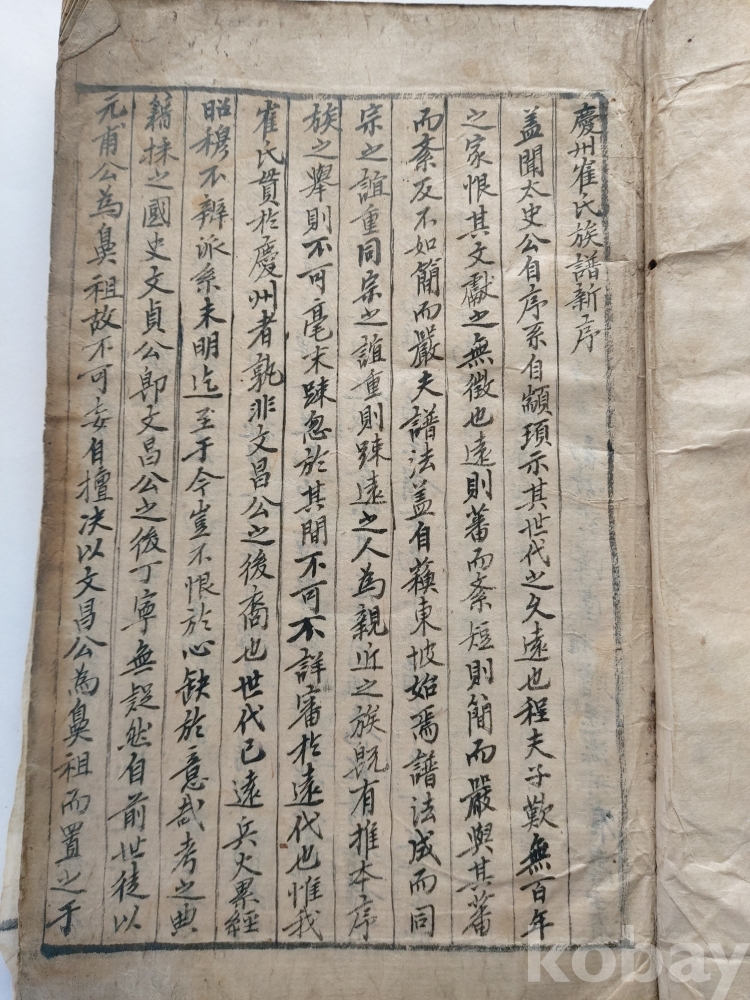 慶州崔氏族譜新序
盖聞太史公自序系自顓頊示其世代之久遠也程夫子歎無百年
之家恨其文獻之無徵也遠則蕃而紊短則簡而嚴與其蕃
而紊反不如簡而嚴夫譜法盖自蘓東坡始焉譜法成而同
宗之誼重同宗之誼重則踈遠之人為親近之族旣有推本序
族之擧則不可毫末踈忽於其間不可不詳審於遠代也惟我
崔氏貫於慶州者孰非文昌公之後裔也世代已遠兵火累經
昭穆不辨派系未明迄至于今豈不恨於心缺於意哉考之典
籍採之國史文貞公卽文昌公之後丁寧無疑然自前世徒以
元甫公為鼻祖故不可妄自擅决以文昌公為鼻祖而置之于
kobay